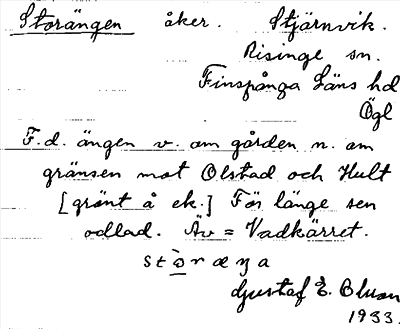 Storängen åker. Stjärnvik.
Risinge sn.
Finspånga Läns hd
Ögl
F.d. ängen v. om gården n. om
gränsen mot Olstad och Hult
[grönt å ek.] För länge sen
odlad. Äv = Vadkärret.
Gustaf E. Bluom
1933.